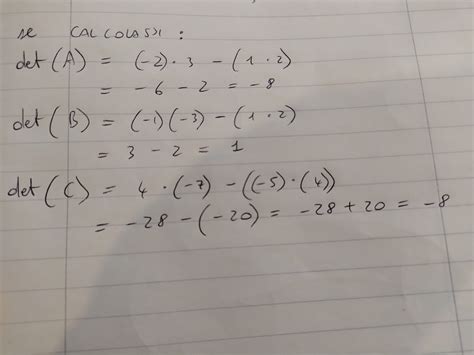 se CALCOLASSI :
det(A) = (-2)·3 - (1·2)
= -6 - 2 = -8
det(B) = (-1)(-3) - (1·2)
= 3 - 2 = 1
det(C) = 4·(-7) - ((-5)·(4))
= -28 - (-20) = -28 + 20 = -8